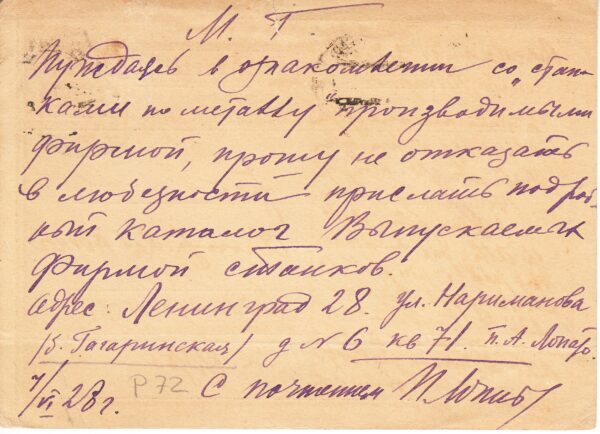 М. Г.
Нуждаясь в ознакомлении со стан-
ками по металлу производимыми
фирмой, прошу не отказать
в любезности прислать подроб-
ный каталог Выпускаемых
Фирмой станков.
адрес: Ленинград 28. ул. Нариманова
/б. Гагаринская/ д № 6 кв 71. П. А.
7/VI 28 г. P72 С почтением